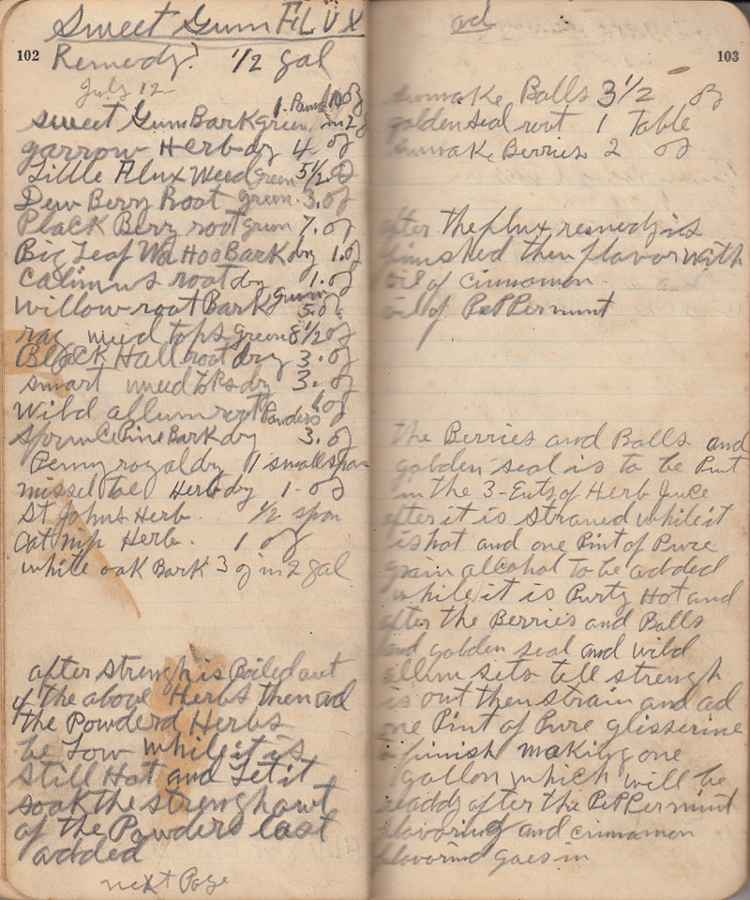 Sweet Gum FLUX
102
Remedy. 1/2 gal
July 12
1. Pound
sweet Gum Bark green in 2 g
yarrow Herb dry 4 oz
Little Flux Weed green 5 1/2 oz
Dew Berry Root green. 3. oz
Black Berry root green 7. oz
Big Leaf Wa Hoo Bark dry 1. oz
Calimus root dry 1. oz
Willow root Bark green 5. oz
rag weed tops green 8 1/2 oz
Black Hall root dry 3. oz
smart weed tops dry 3. oz
Wild allum root Powders 6 oz
Spruce Pine Bark dry 3. oz
Penny royal dry 1 small span
missel toe Herb dry 1 - oz
St Johns Herb. 1/2 spon
Catnip Herb. 1 oz
white oak Bark 3 oz in 2 gal
after strengh is Boiled out
of the above Herbs then ad
the Powderd Herbs
be Low while it is
still Hot and Let it
soak the strengh out
of the Powders Last
added
next Page
ad
103
sumake Balls 3 1/2 oz
goldenseal root 1 Table
sumake Berries 2 oz
after the flux remedy is
finished then flavor with
oil of cinnamon.
oil of PePPermint
the Berries and Balls and
golden seal is to be Put
in the 3-Quts of Herb Juce
after it is strained while it
is hot and one Pint of Pure
grain alcohol to be added
while it is Purty Hot and
after the Berries and Balls
and golden seal and wild
allum sits tell strengh
is out then strain and ad
one Pint of Pure glisserine
finish making one
gallon which will be
ready after the PePPermint
flavoring and cinnamon
flavoring goes in